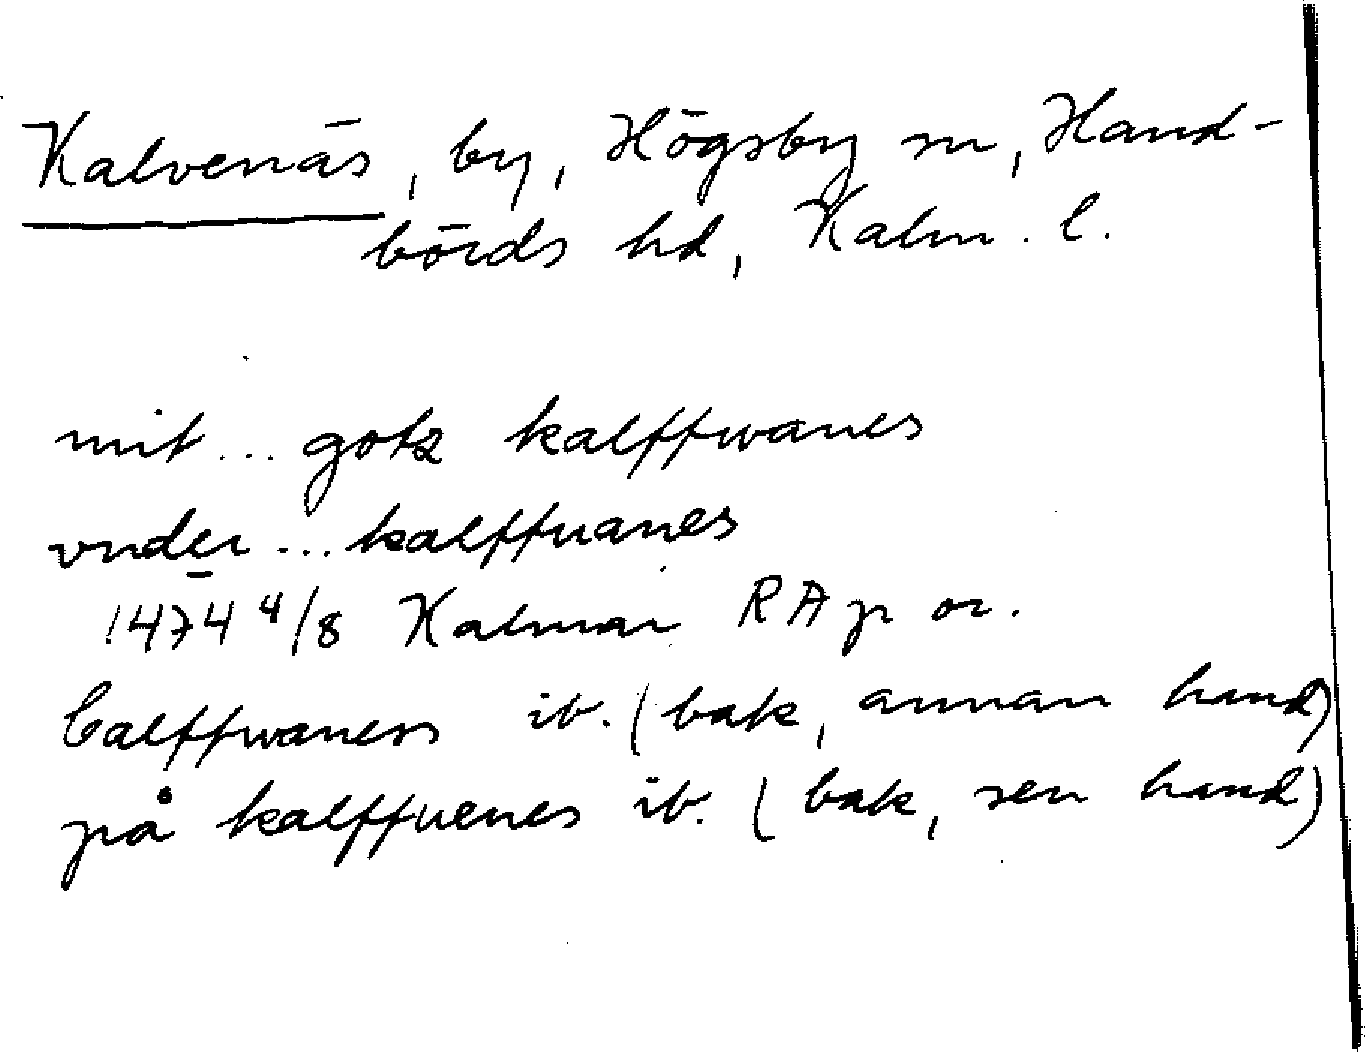 Kalvenäs, by, Högsby sn, Hand-
börds hd, Kalm. l.
mit... gotz kalffwanes
vnder... kalffuanes
1474 4/8 Kalmar RA p or.
Calffwaness ib. (bak, annan hand)
på kalffuenes ib. (bak, sen hand)